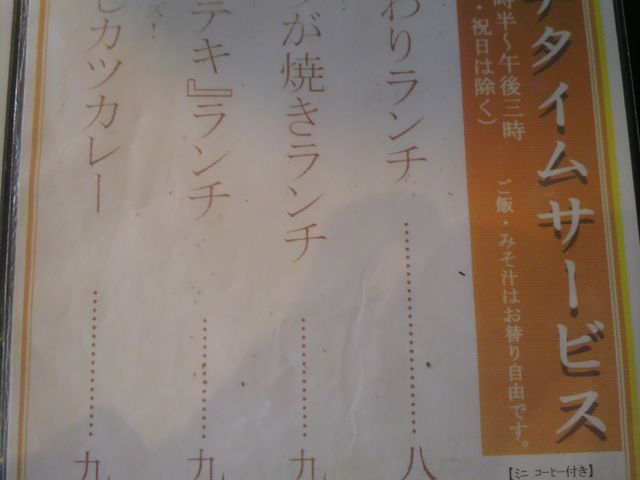 タイムサービス
時半〜午後三時
・祝日は除く）
ご飯・みそ汁はお替り自由です。
【ミニ コーヒー付き】
わりランチ…………………八
が焼きランチ…………九
テキ』ランチ…………九
ス！
カツカレー…………九